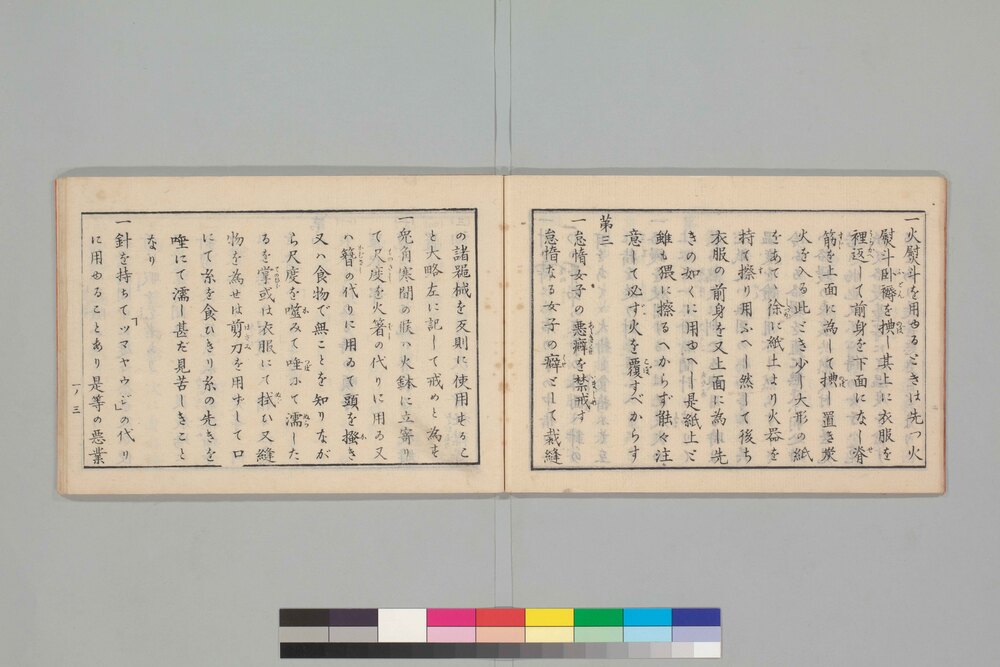 一火熨斗を用ゆるときは先つ火
熨斗臥褥を摸し其上に衣服を
裡返して前身を下面になし脊
筋を上面に為して摸し置き炭
火を入る此とき少し大形の紙
をあて、徐に紙上より火器を
持て擦り用ふへし然して後ち
衣服の前身を又上面に為し先
きの如くに用ゆへし是紙上と
雖も猥に擦るへからず能々注
意して必ず火を覆すべからす
第三
一怠惰女子の悪癖を禁戒す
怠惰なる女子の癖として裁縫
の諸器械を反則に使用するこ
と大略左に記して戒めと為す
一兎角寒間の候ハ火鉢に立寄り
て尺度を火箸の代りに用ゐ又
ハ簪の代りに用ゐて頭を掻き
又ハ食物で無ことを知りなが
ら尺度を噬みて唾にて濡した
るを掌或は衣服にて拭ひ又縫
物を為せは剪刀を用ずして口
にて糸を食ひきり糸の先きを
唾にて濡し甚だ見苦しきこと
なり
一針を持ちて「ツマヤウジ」の代り
に用ゆることあり是等の悪業
一ノ三